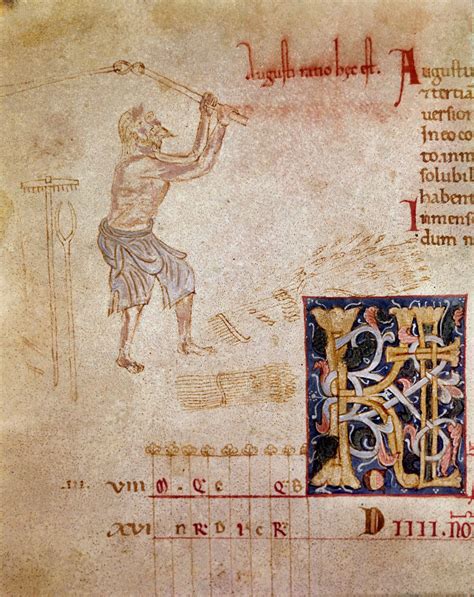 Augusti ratio hec est.
Augustu
& tertia
version
In eo co
to. in m
solubil
habent
Inmens
dum n
KL
.III. VIII
XVI D IIII. NO